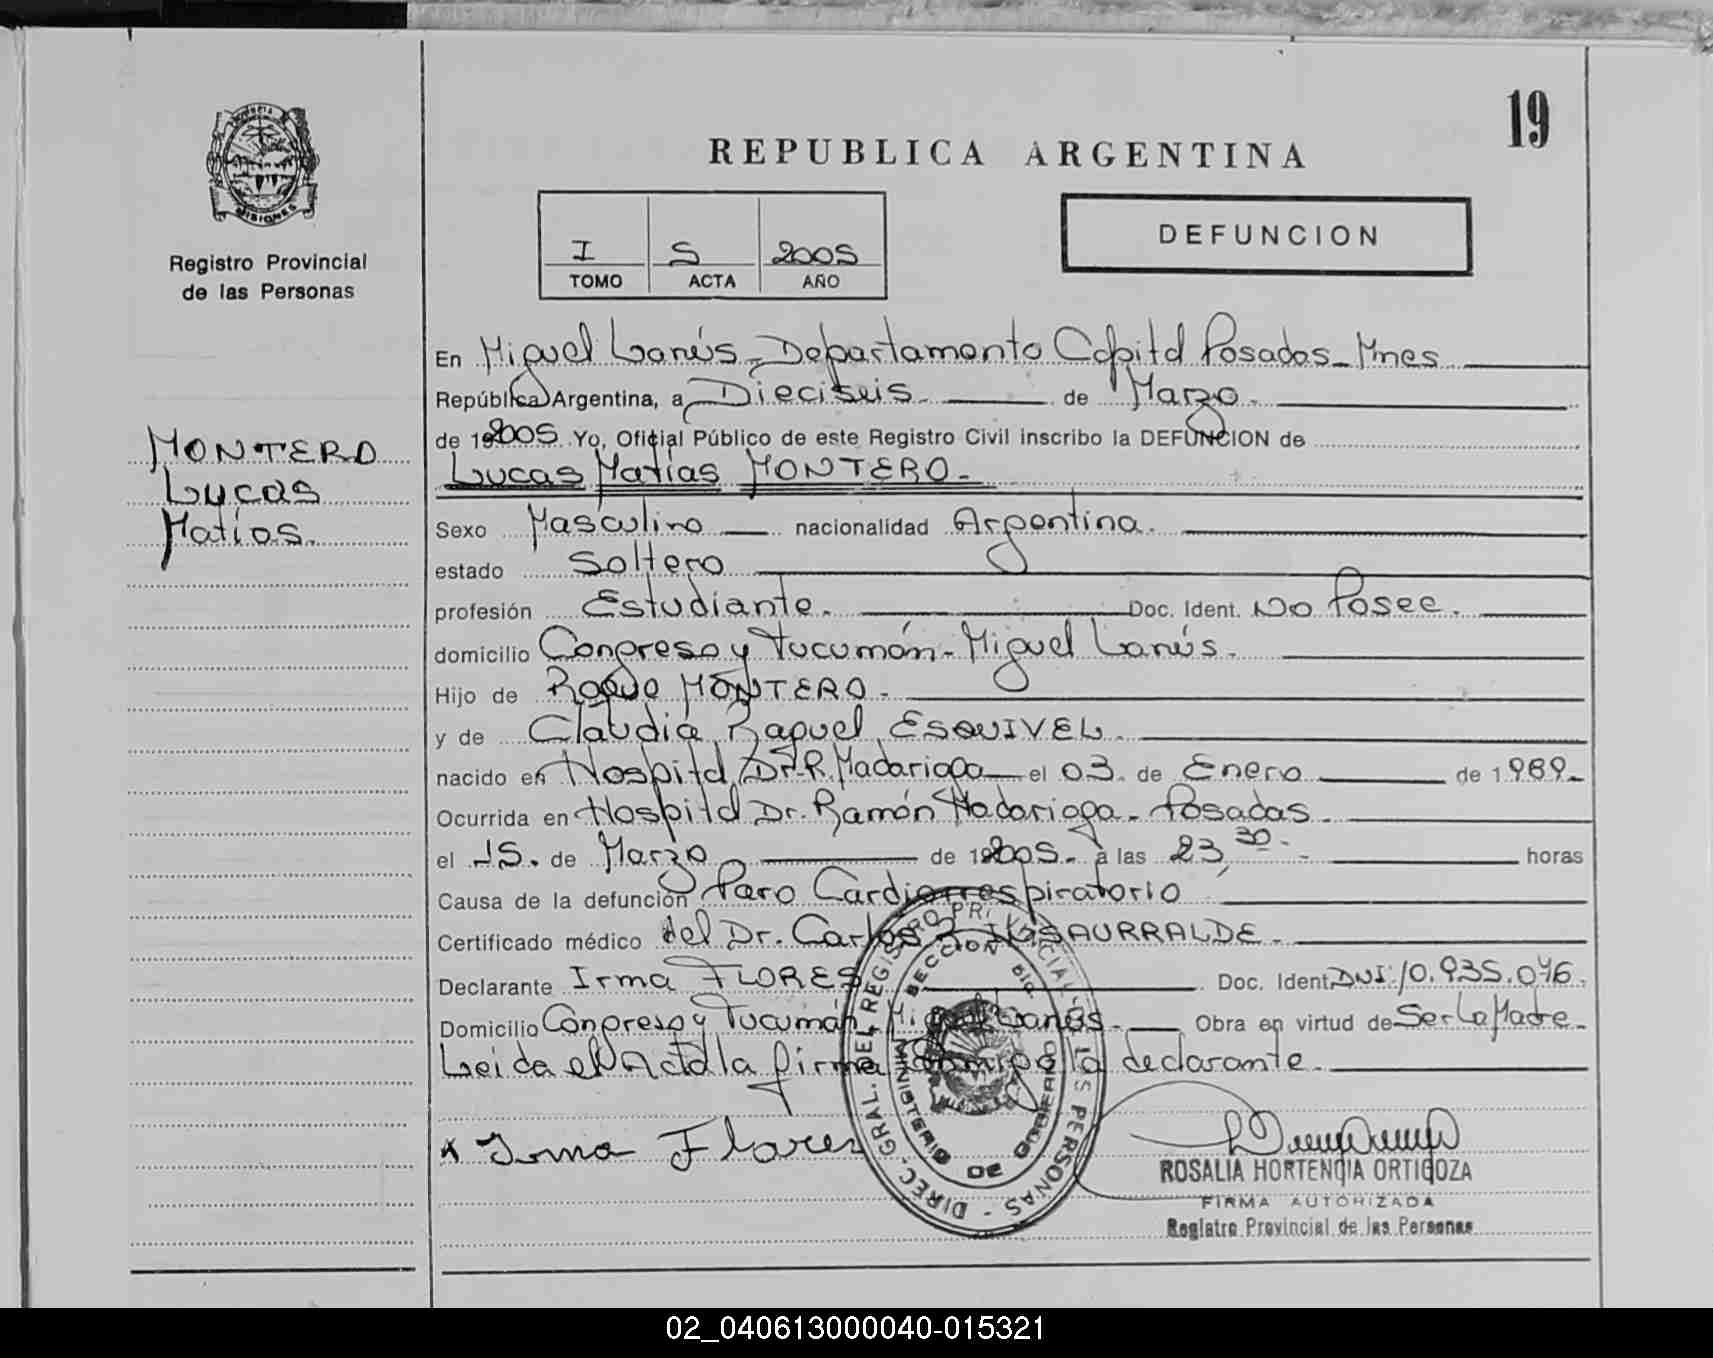 19
REPUBLICA ARGENTINA
MISIONES
Registro Provincial
de las Personas
I S 2005
TOMO ACTA AÑO
DEFUNCION
MONTERO
Lucas
Matías.
En Miguel Lanús - Departamento Capital Posadas - Mnes
República Argentina, a Dieciseis de Marzo.
de 2005 Yo, Oficial Público de este Registro Civil inscribo la DEFUNCION de
Lucas Matías MONTERO.-
Sexo Masculino nacionalidad Argentina.
estado Soltero
profesión Estudiante. Doc. Ident. No Posee.
domicilio Congreso y Tucumán - Miguel Lanús.
Hijo de Roque MONTERO.
y de Claudia Raquel ESQUIVEL.
nacido en Hospital Dr. R. Madariaga el 03. de Enero de 1989.-
Ocurrida en Hospital Dr. Ramón Madariaga - Posadas.
el 15. de Marzo de 2005.- a las 23,30.- horas
Causa de la defunción Paro Cardiorrespiratorio
Certificado médico del Dr. Carlos INSAURRALDE.
Declarante Irma FLORES Doc. Ident. DNI: 10.935.076.
Domicilio Congreso y Tucumán Miguel Lanús. Obra en virtud de Ser La Madre.
Leida el Acta la firma conmigo la declarante.
x Irma Flores
DIREC. GRAL. DEL REGISTRO PROVINCIAL DE LAS PERSONAS
SECCION
MINISTERIO DE GOBIERNO
ROSALIA HORTENCIA ORTIGOZA
FIRMA AUTORIZADA
Registro Provincial de las Personas
02_040613000040-015321